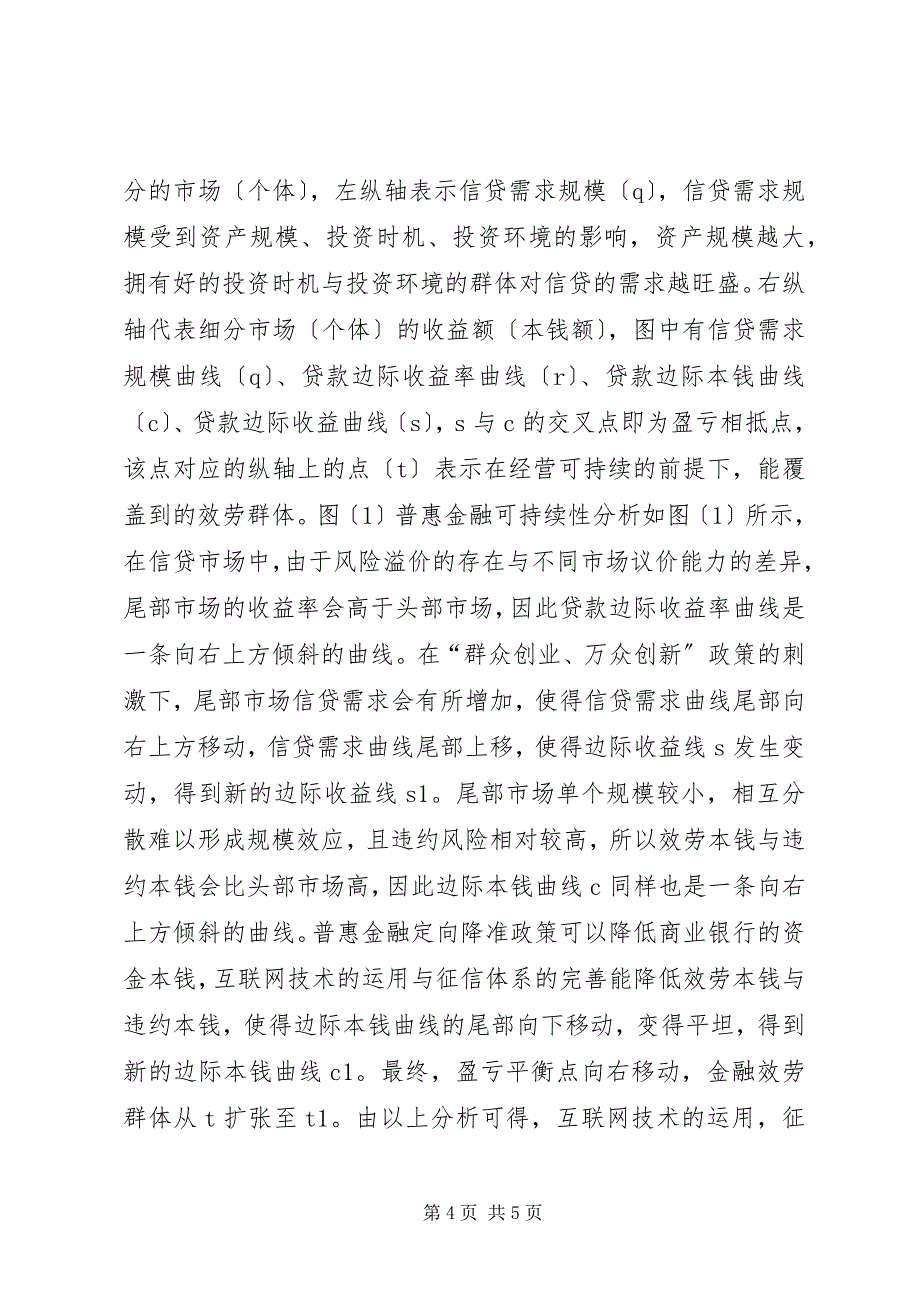 分的市场〔个体〕，左纵轴表示信贷需求规模〔q〕，信贷需求规
模受到资产规模、投资时机、投资环境的影响，资产规模越大，
拥有好的投资时机与投资环境的群体对信贷的需求越旺盛。右纵
轴代表细分市场〔个体〕的收益额〔本钱额〕，图中有信贷需求
规模曲线〔q〕、贷款边际收益率曲线〔r〕、贷款边际本钱曲线
〔c〕、贷款边际收益曲线〔s〕，s 与 c 的交叉点即为盈亏相抵点，
该点对应的纵轴上的点〔t〕表示在经营可持续的前提下，能覆
盖到的效劳群体。图〔1〕普惠金融可持续性分析如图〔1〕所示，
在信贷市场中，由于风险溢价的存在与不同市场议价能力的差异，
尾部市场的收益率会高于头部市场，因此贷款边际收益率曲线是
一条向右上方倾斜的曲线。在“群众创业、万众创新〞政策的刺
激下，尾部市场信贷需求会有所增加，使得信贷需求曲线尾部向
右上方移动，信贷需求曲线尾部上移，使得边际收益线 s 发生变
动，得到新的边际收益线 s1。尾部市场单个规模较小，相互分
散难以形成规模效应，且违约风险相对较高，所以效劳本钱与违
约本钱会比头部市场高，因此边际本钱曲线 c 同样也是一条向右
上方倾斜的曲线。普惠金融定向降准政策可以降低商业银行的资
金本钱，互联网技术的运用与征信体系的完善能降低效劳本钱与
违约本钱，使得边际本钱曲线的尾部向下移动，变得平坦，得到
新的边际本钱曲线 c1。最终，盈亏平衡点向右移动，金融效劳
群体从 t 扩张至 t1。由以上分析可得，互联网技术的运用，征
第 4 页 共 5 页